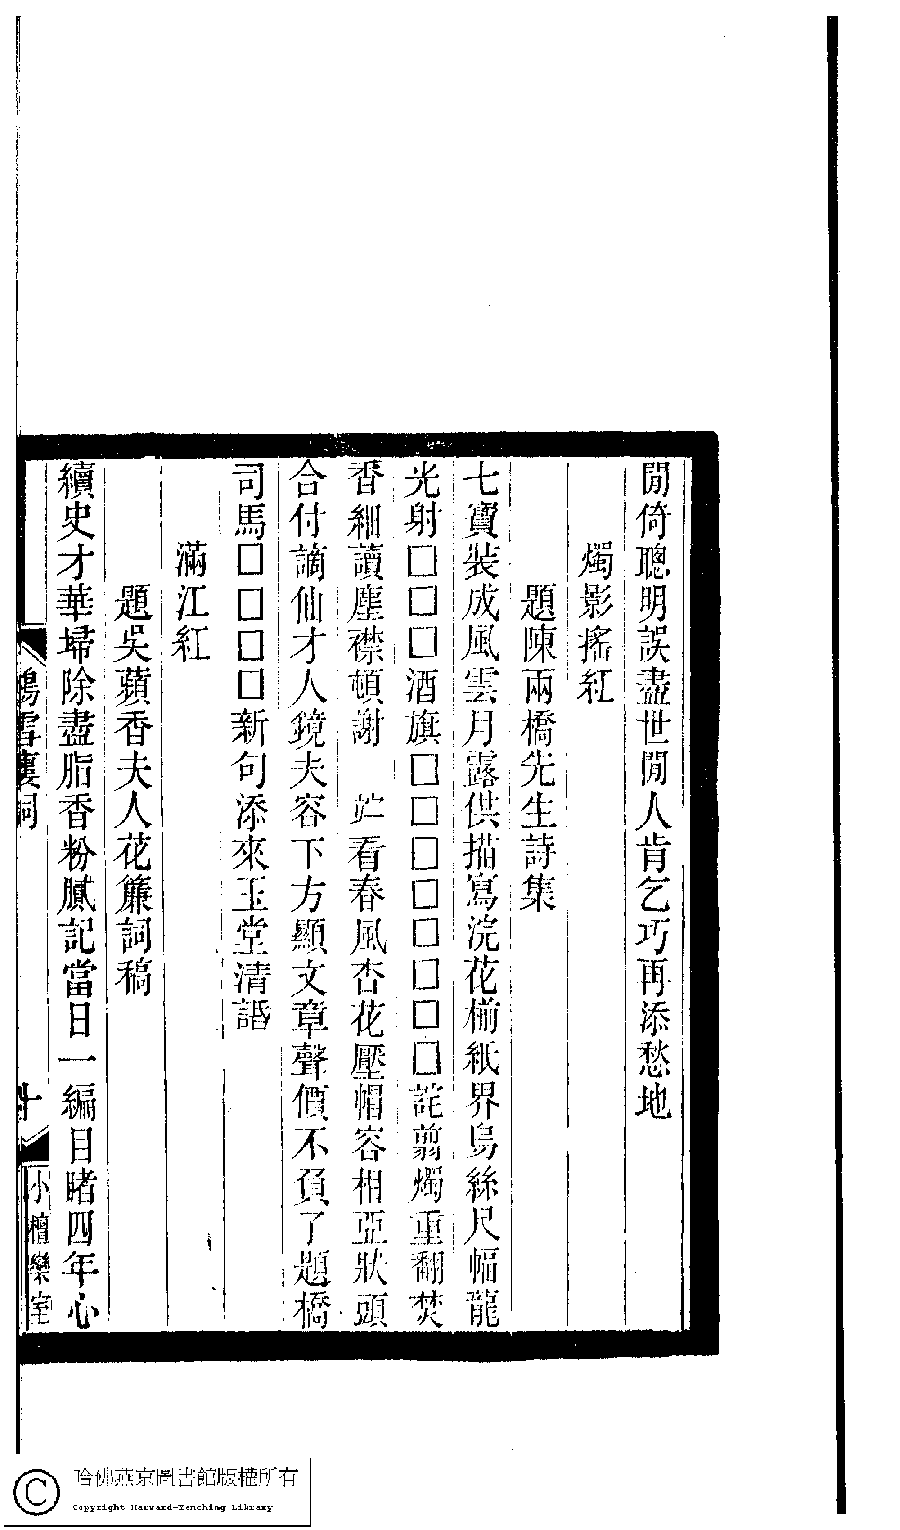 閒倚聰明誤盡世閒人肯乞巧再添愁地
燭影搖紅
題陳兩橋先生詩集
七寶裝成風雲月露供描寫浣花㮽紙界烏絲尺幅龍
光射□□□酒旗□□□□□□□□詫翦燭重翻焚
香細讀塵襟頓謝　看春風杏花壓帽容相亞狀頭
合付謫仙才人鏡夫容下方顯文章聲價不負了題橋
司馬□□□□新句添來玉堂清話
滿江紅
題吳蘋香夫人花簾詞稿
續史才華埽除盡脂香粉膩記當日一編目睹四年心
鴻雪樓詞
十
小檀欒室
哈佛燕京圖書館版權所有
Copyright Harvard-Yenching Library